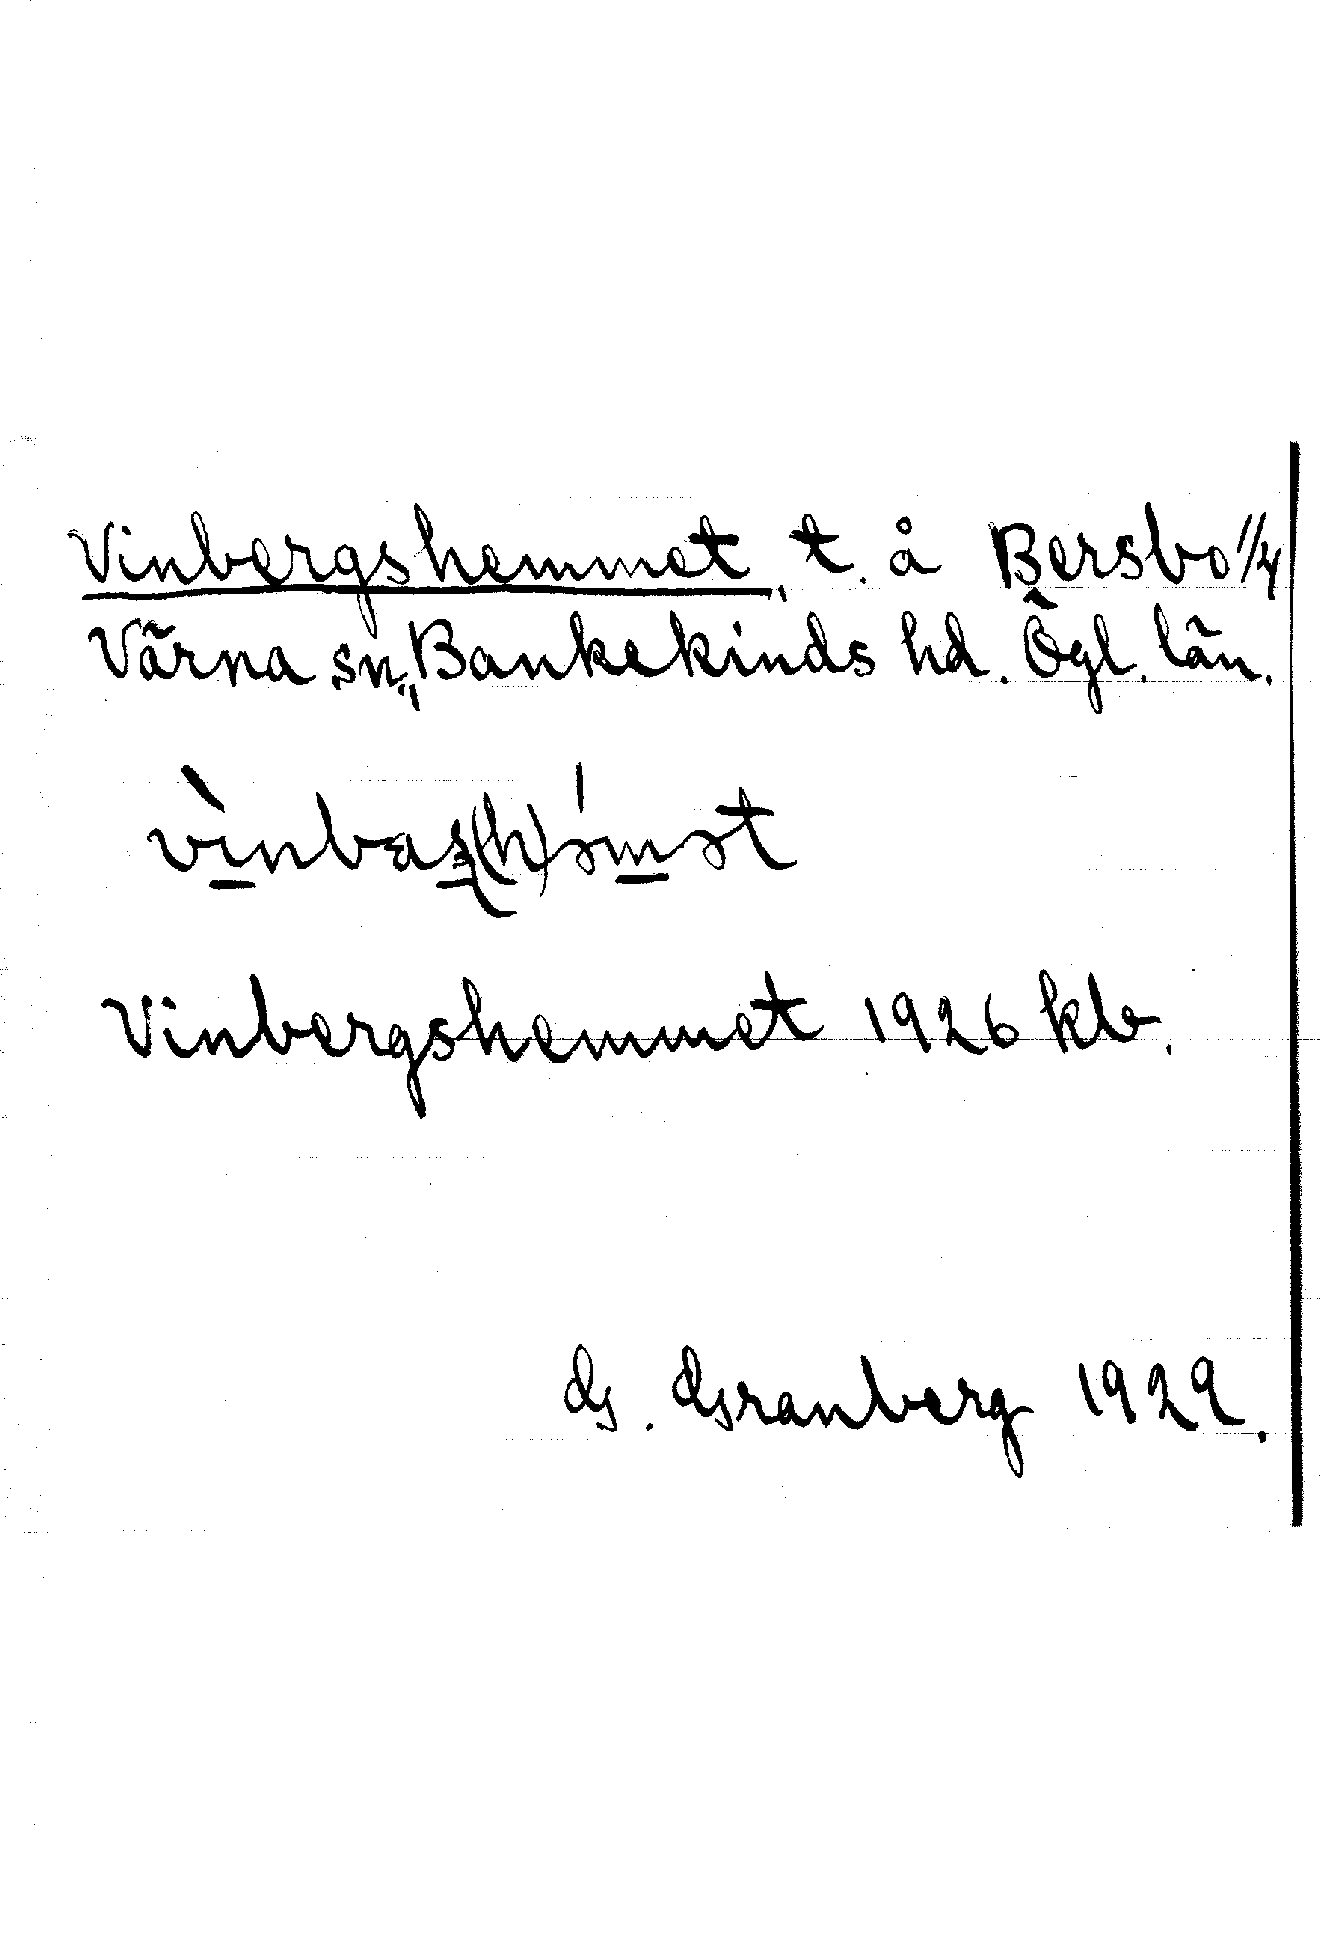 Vinbergshemmet, t. å Bersbo 1/4
Värna sn, Bankekinds hd. Ögl. län.
Vinbergshemmet 1926 kb.
G. Granberg 1929.